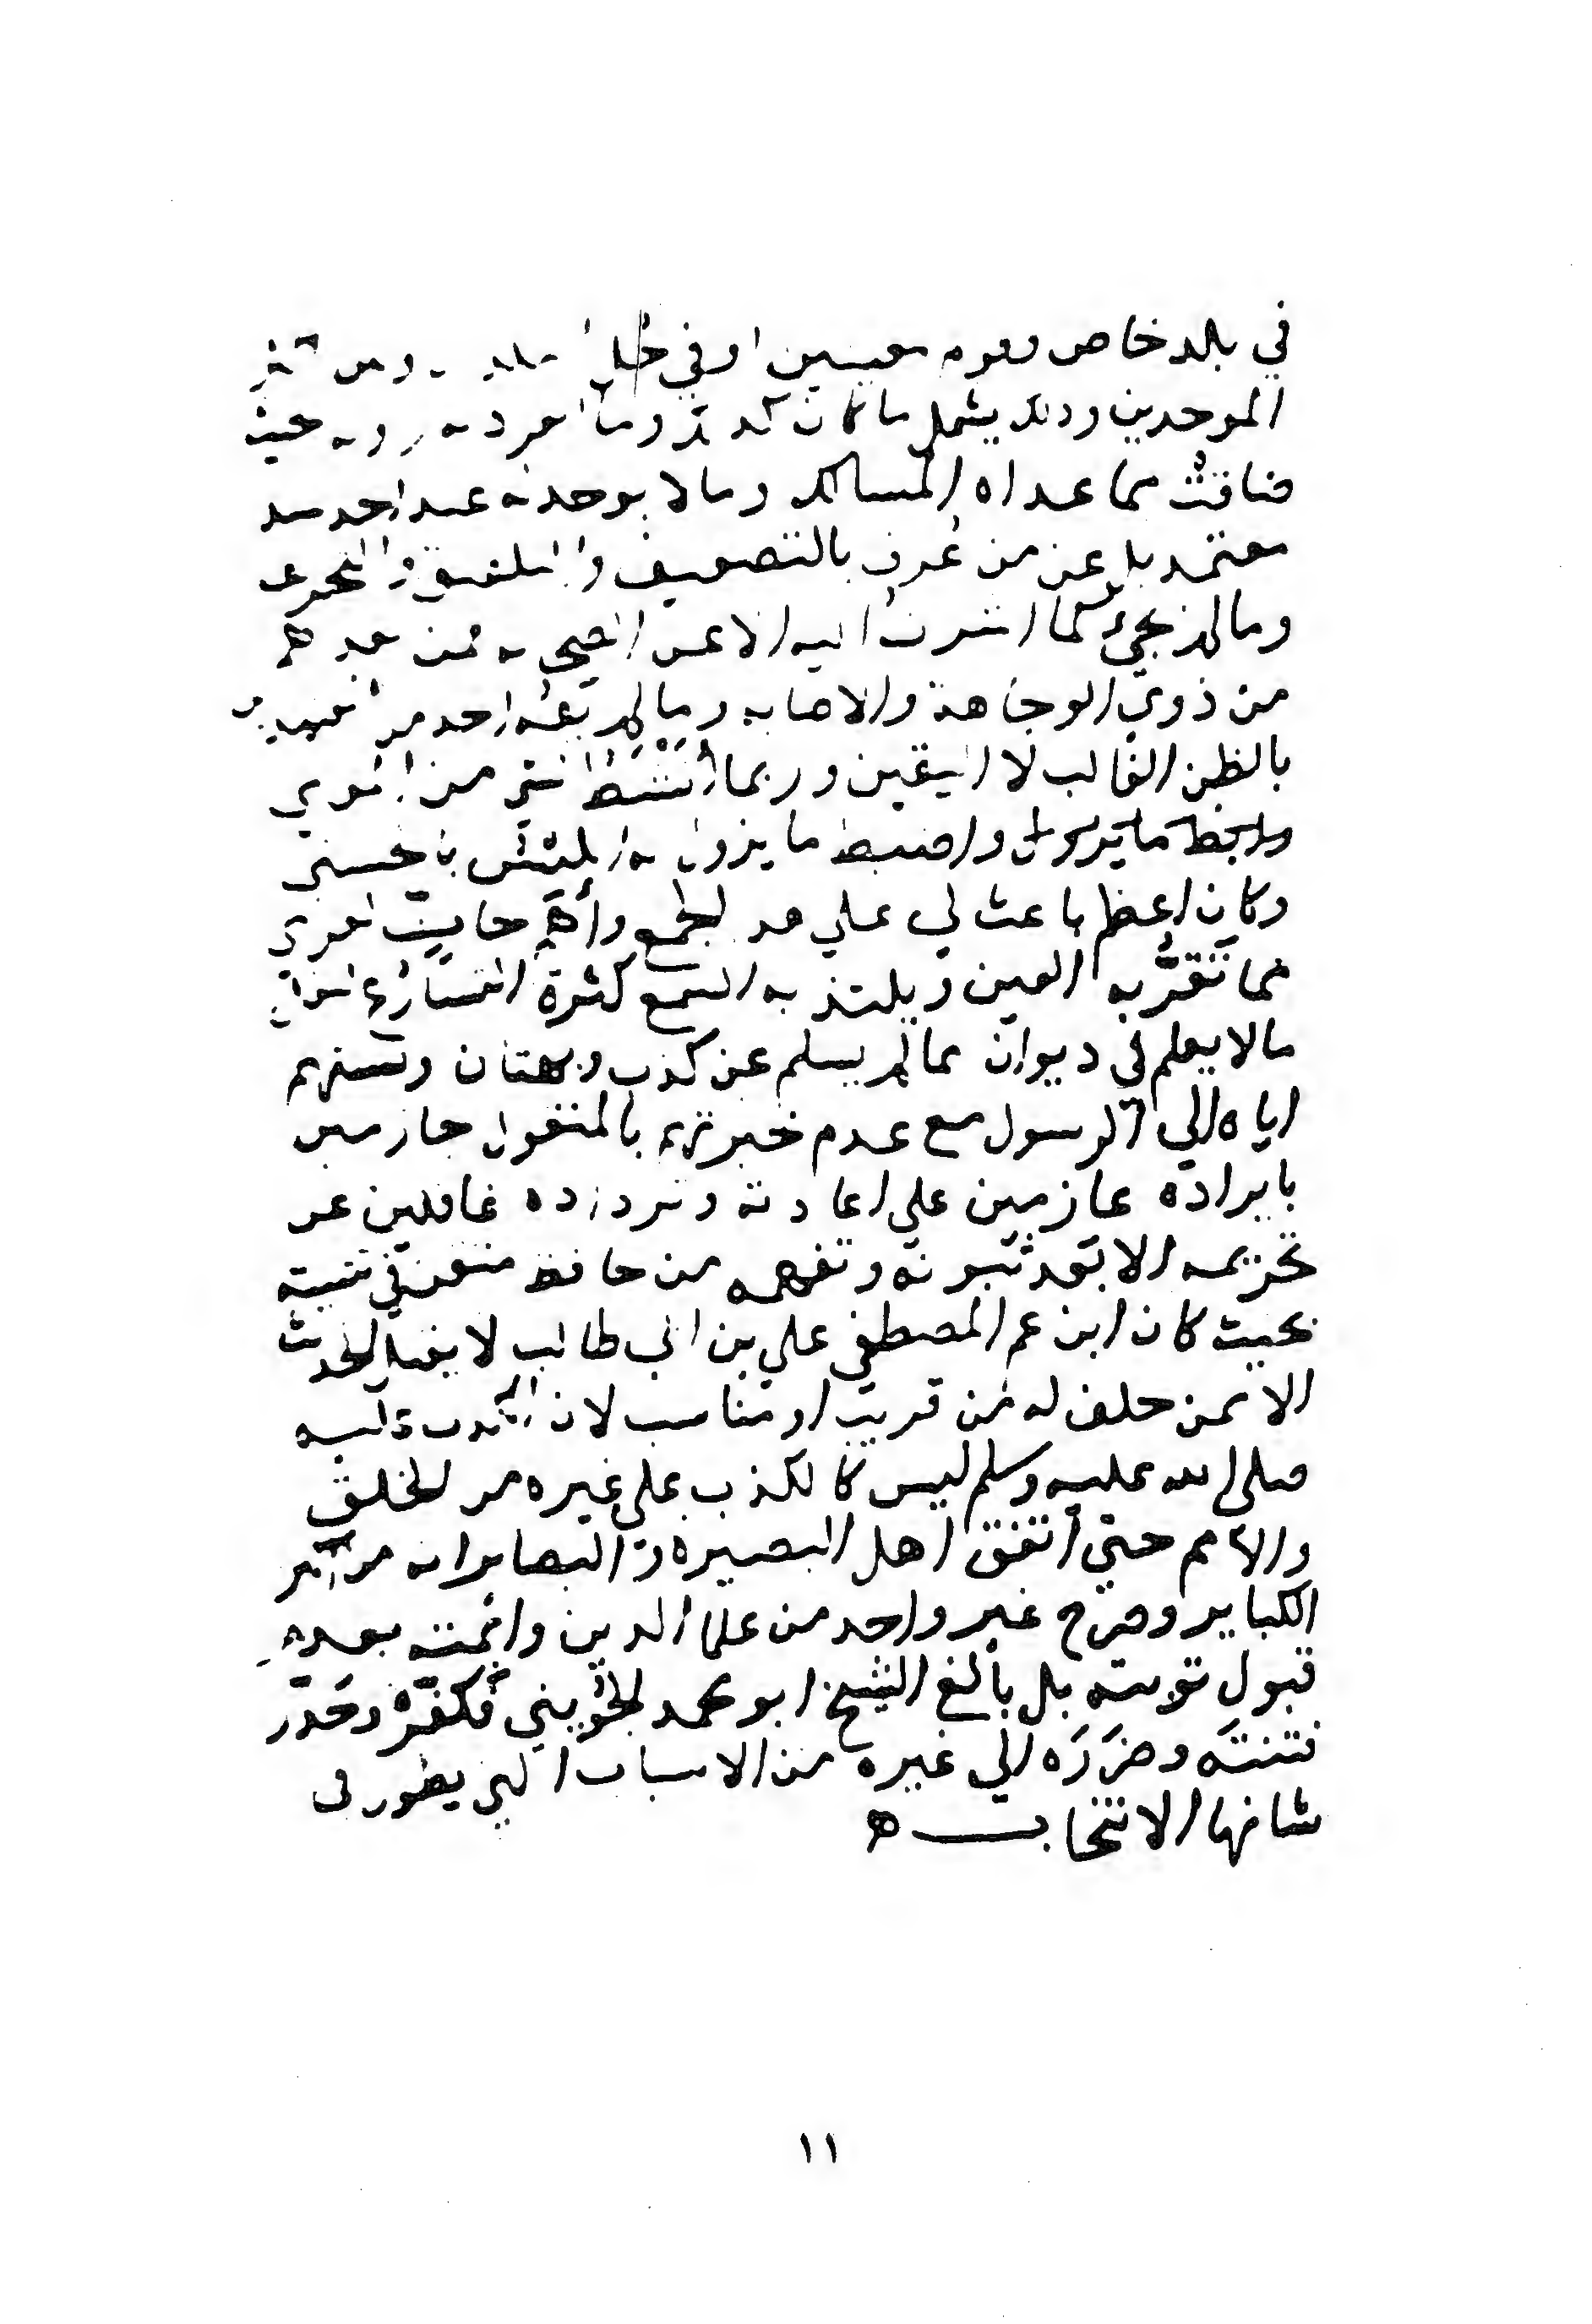 في بلد خاص وقوم معينين او في جل البلدان وبين اكثر
الموحدين وذلك يشمل ما كان كذلك وما انفرد به راويه بحيث
ضاقت مما عداه المسالك وما لا يوجد له عند احد سند
معتمد بل عن من عُرف بالتضعيف والتلفيق
وما لم يجئ كما اشرت اليه الا عن الصحابة فمن بعدهم
من ذوي الوجاهة والاصابه وما لم يَفُه احد من
بالظن الغالب لا اليقين وربما أنشَطُ لشي من المروي
واضبط ما يزول به اللبس باحسن
وكان اعظم باعث لي على هذا الجمع وأهم حاث لعزمي
فيما تَقَرُّ به العين ويلتذ به السمع كثرة التنازع لنقل
ما لا يعلم في ديوان مما لم يسلم عن كذب وبهتان ونسبتهم
اياه الي الرسول مع عدم خبرتهم بالمنقول جازمين
بايراده عازمين علي اعادته وترداده غافلين عن
تحريمه الا بعد ثبوته وتفهمه من حافظ متقن في تثبته
بحيث كان ابن عم المصطفي علي بن ابي طالب لا يقبل الحديث
الا ممن حلف له من قريب او مناسب لان الكذب عليه
صلى الله عليه وسلم ليس كالكذب على غيره من الخلق
والامم حتي أتفق اهل البصيره والبصاير انه من اكبر
الكباير وصرح غير واحد من علما الدين وائمته بعدم
قبول توبته بل بالغ الشيخ ابو محمد الجويني فكفره وحذّر
فتنتَه وضرَرَه الي غيره من الاسباب التي يطول في
شانها الانتخاب ه
١١